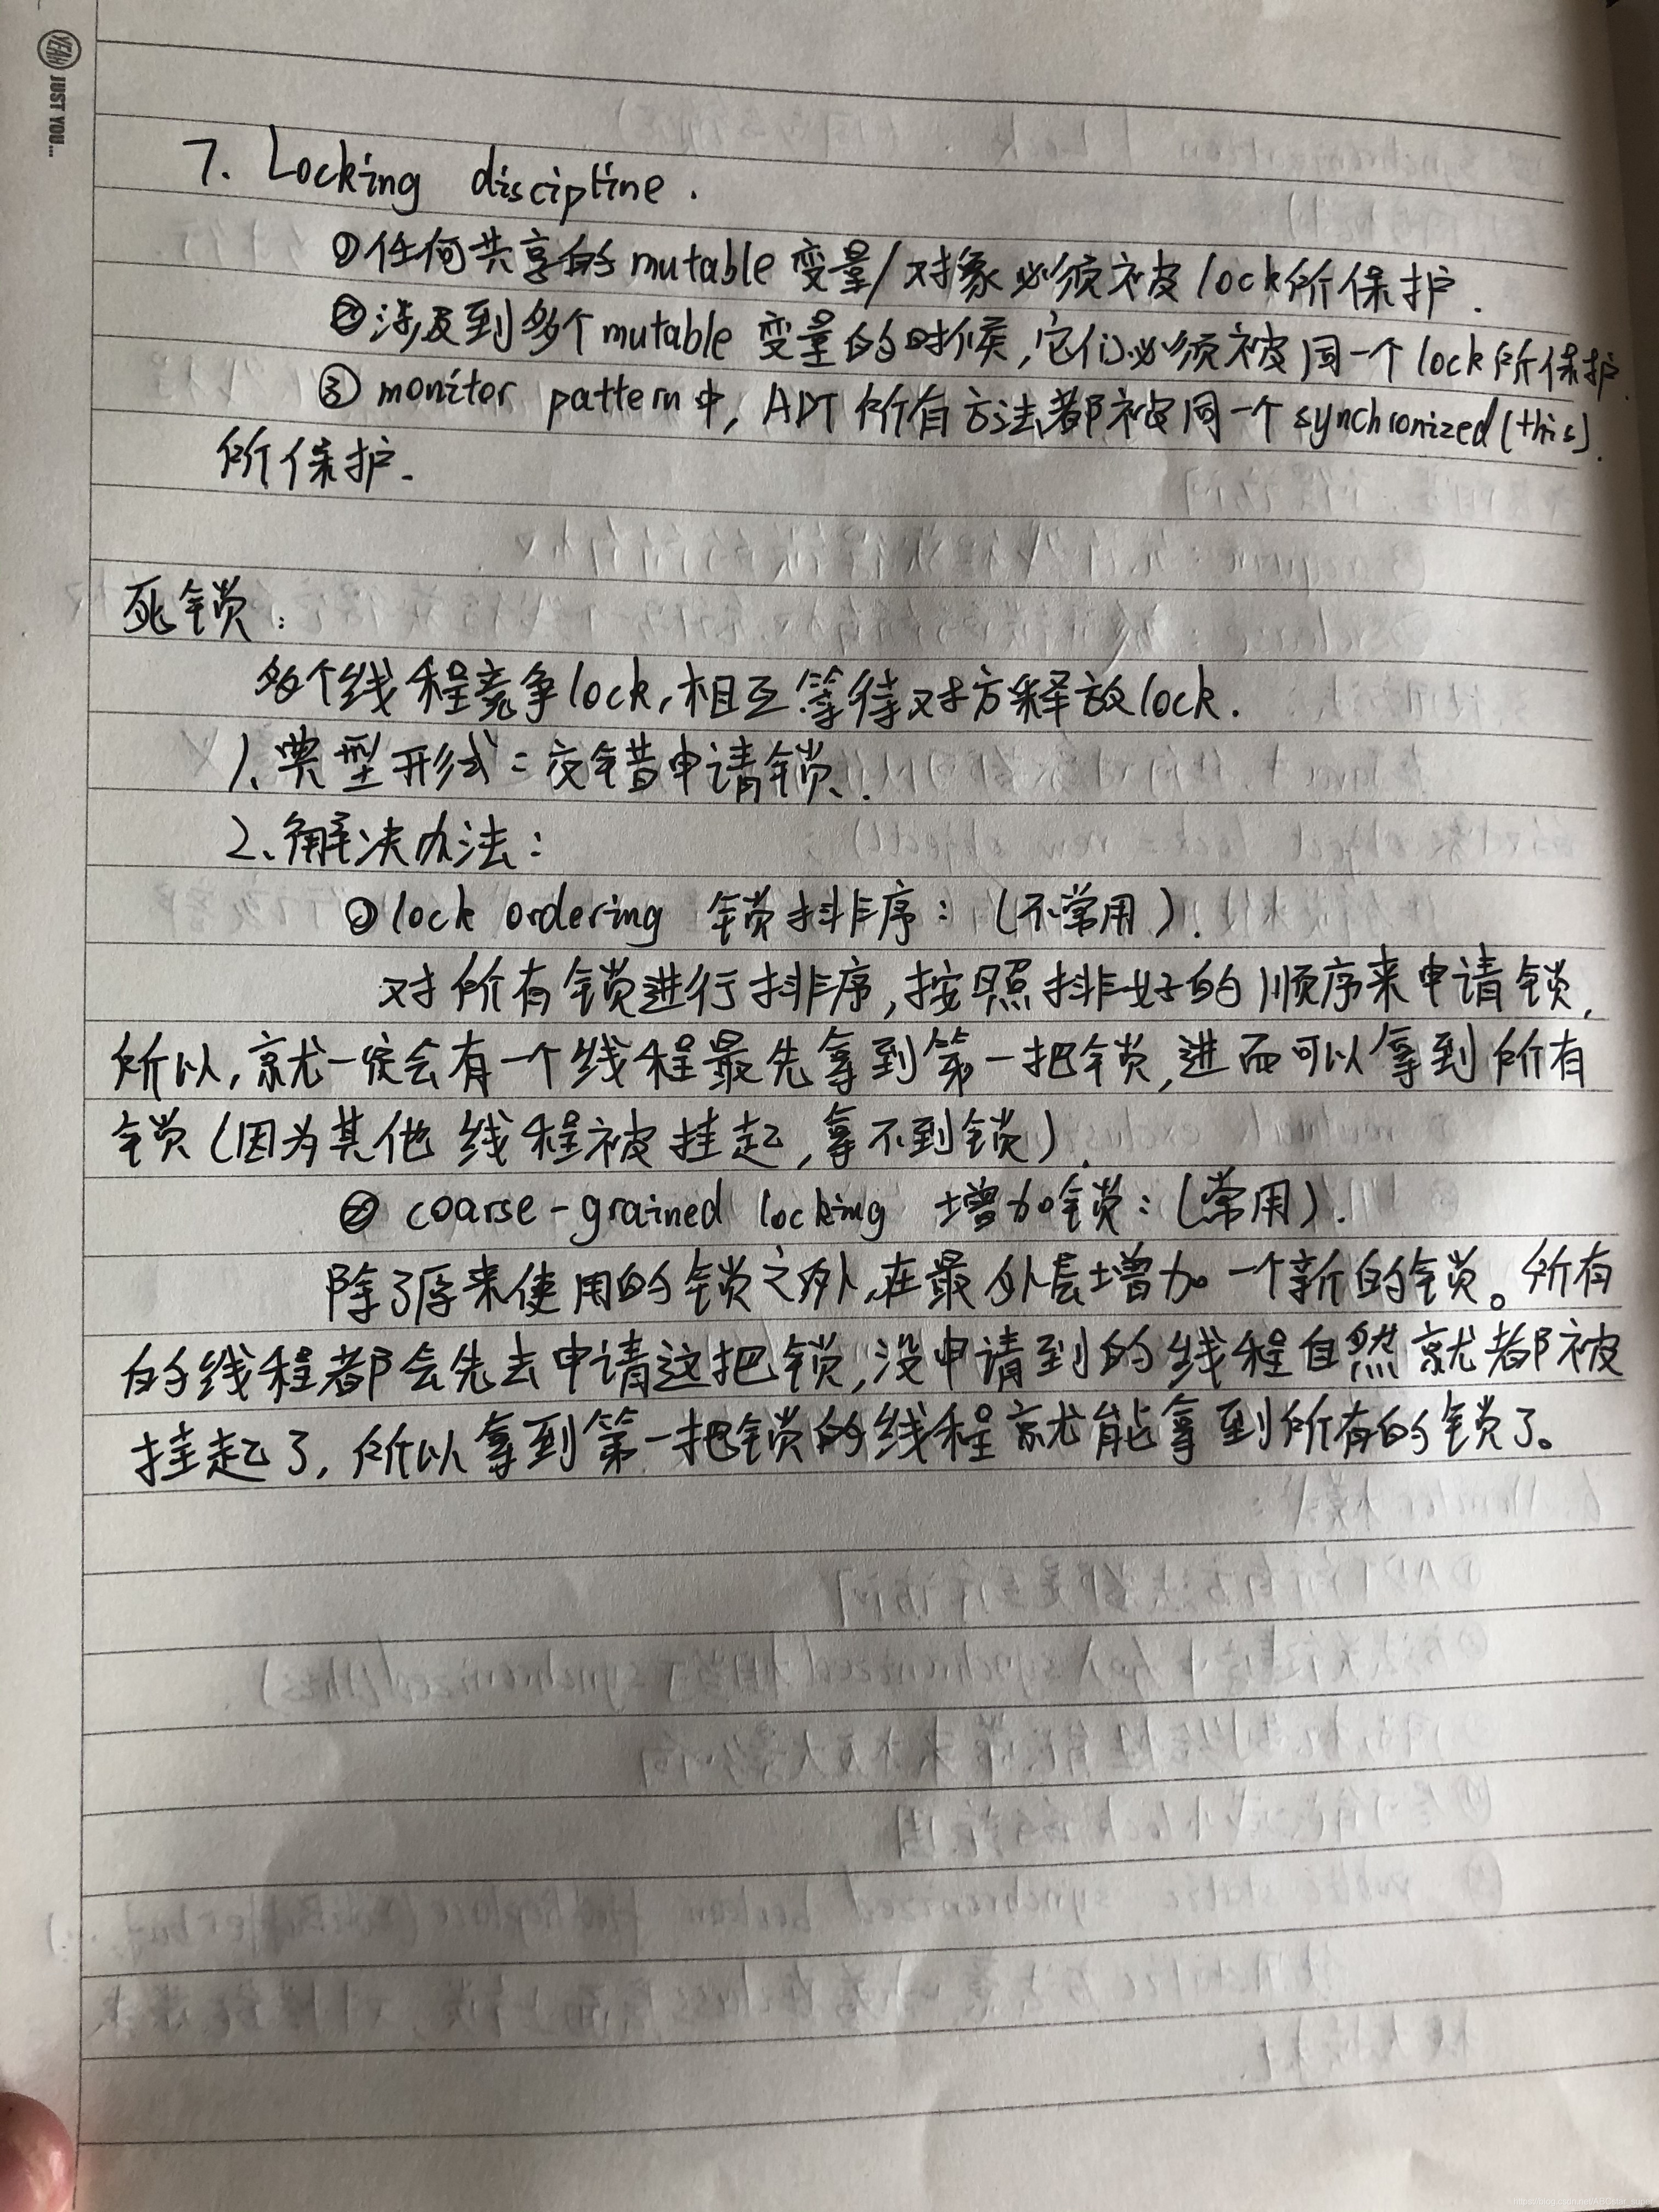 YEAH JUST YOU...
7. Locking discipline.
①任何共享的mutable变量/对象必须被lock所保护.
②涉及到多个mutable变量的时候,它们必须被同一个lock所保护.
③monitor pattern中,ADT所有方法都被同一个synchronized(this).
所保护.
死锁:
多个线程竞争lock,相互等待对方释放lock.
1、典型形式:交错申请锁.
2、解决办法:
①lock ordering 锁排序:(不常用).
对所有锁进行排序,按照排好的顺序来申请锁,
所以,就一定会有一个线程最先拿到第一把锁,进而可以拿到所有
锁(因为其他线程被挂起,拿不到锁).
② coarse-grained locking 增加锁:(常用).
除了原来使用的锁之外,在最外层增加一个新的锁。所有
的线程都会先去申请这把锁,没申请到的线程自然就都被
挂起了,所以拿到第一把锁的线程就能拿到所有的锁了。